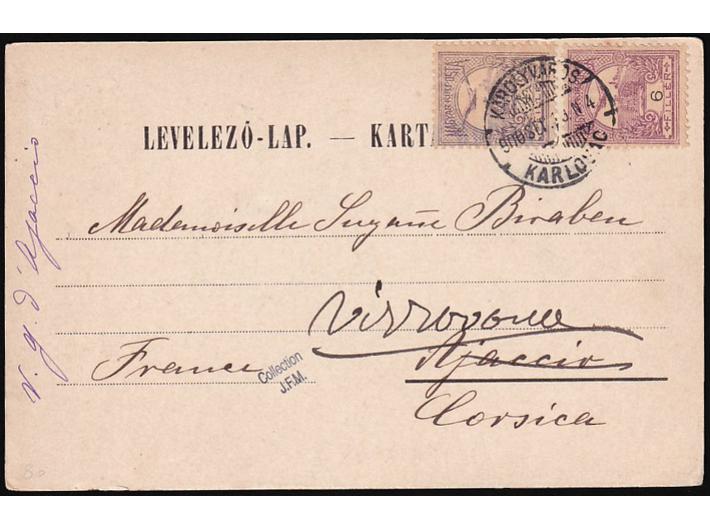 LEVELEZŐ-LAP. — KARTA
KÁROLYVÁROS
KARLOVAC
6
FILLÉR
Mademoiselle Suzanne Biraben
Vizzavona
France
Ajaccio
Corsica
Collection
J.F.M.
v. g. d'Ajaccio